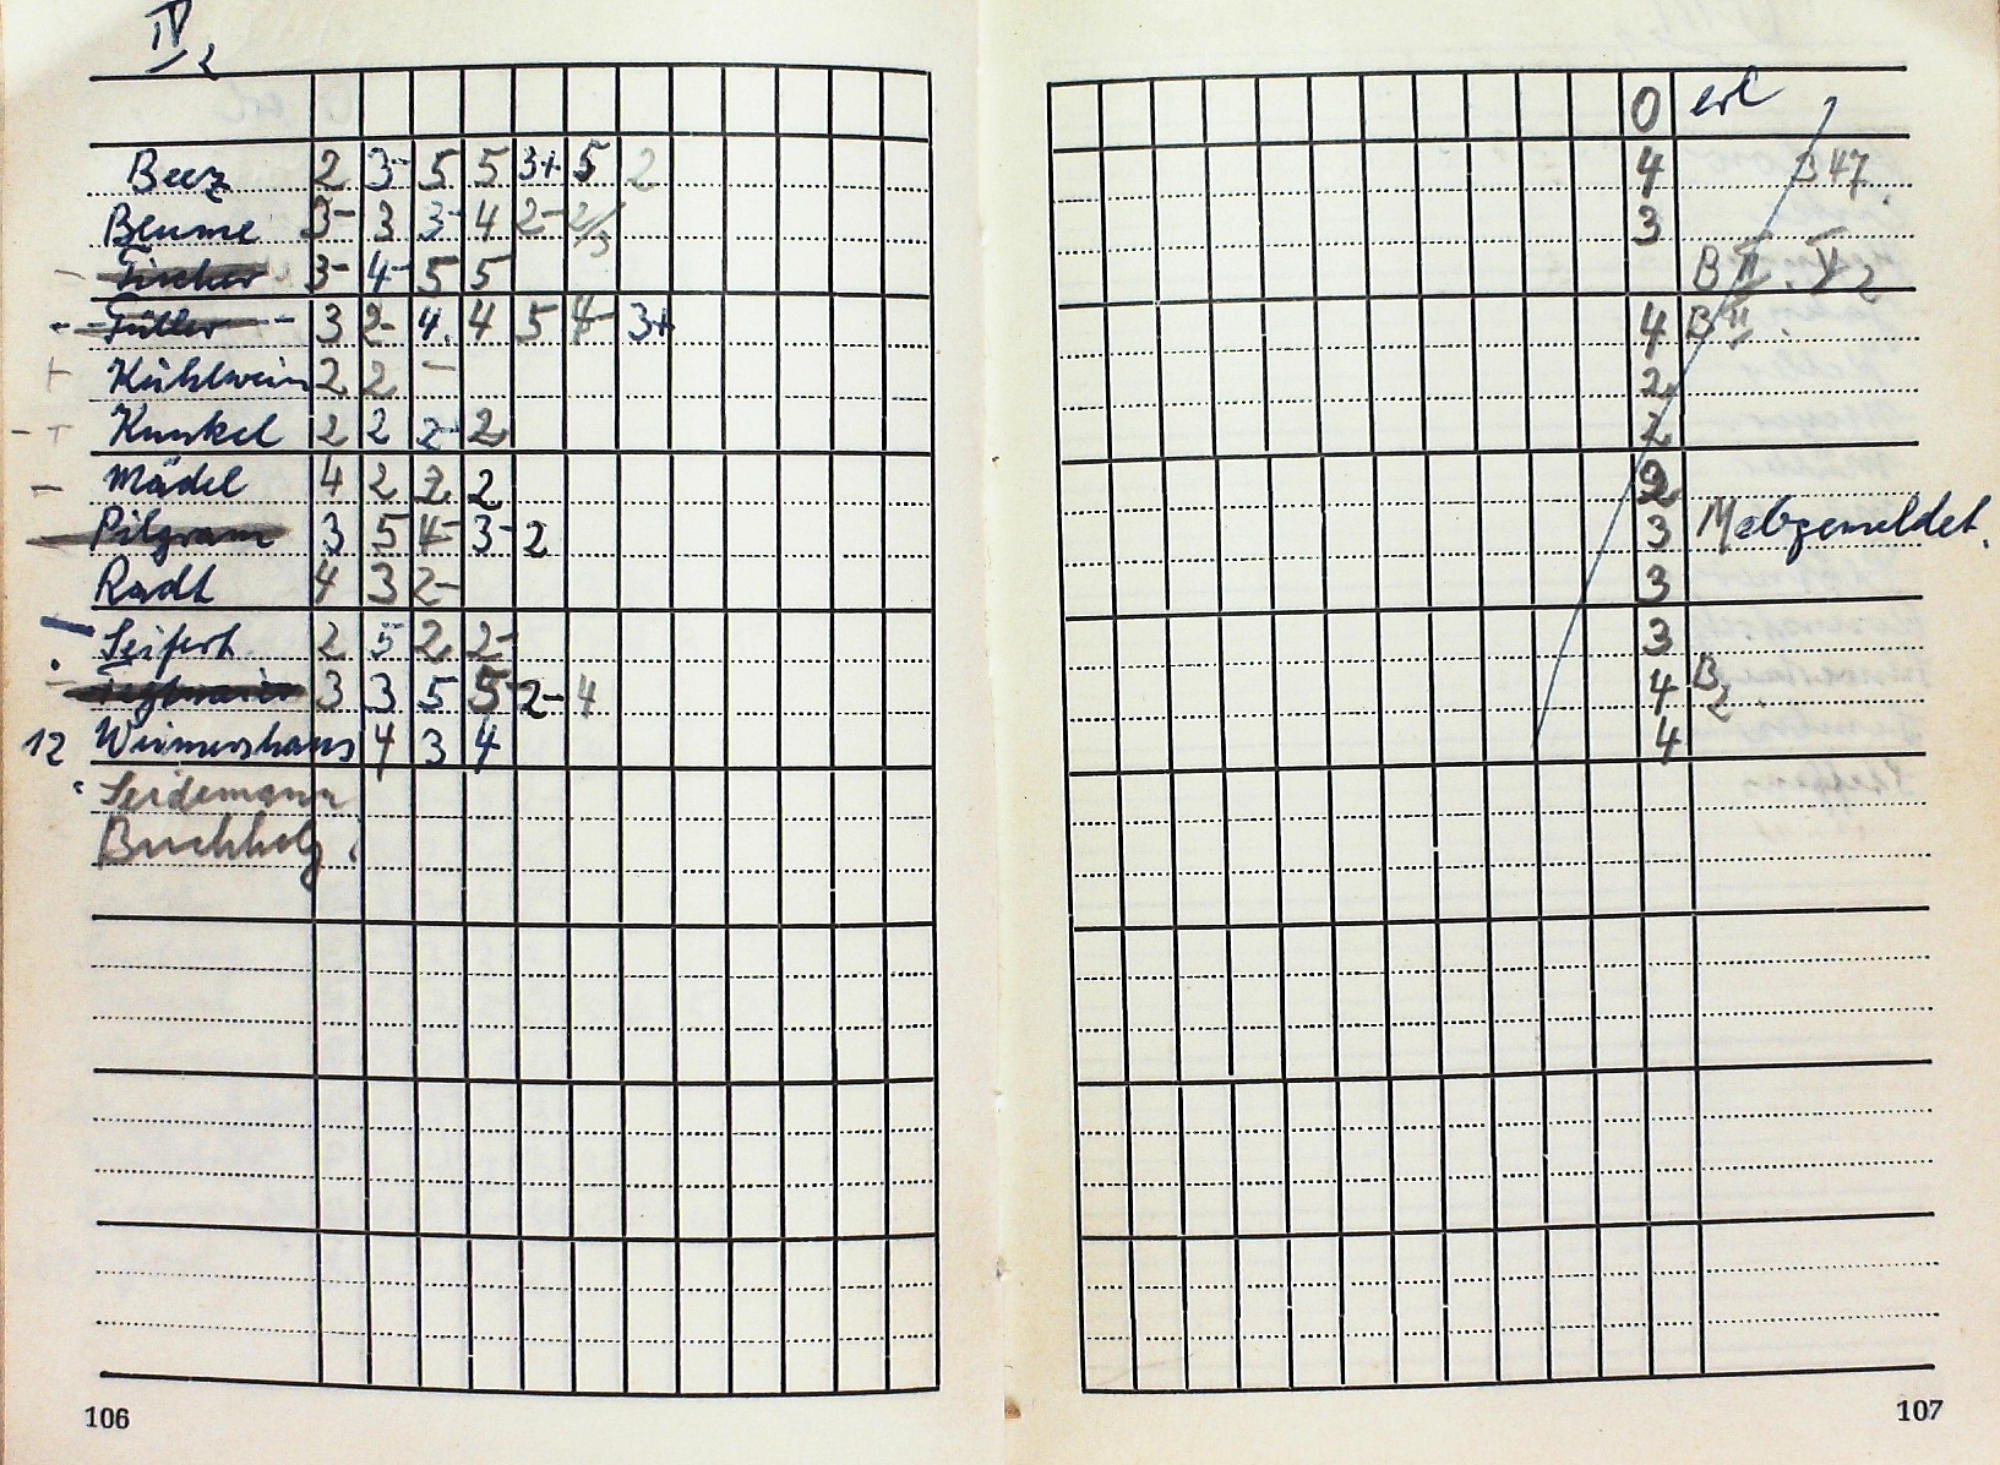 IV2
Beez 2 3- 5 5 3+ 5 2
Blume 3- 3 3- 4 2- 2/3
- Fischer 3- 4- 5 5
3 2- 4. 4 5 4- 3+
+ Kühlwein 2 2 -
- + Kunkel 2 2 2- 2
- Mädel 4 2 2 2
Pilgram 3 5 4- 3- 2
Radt 4 3 2-
Seifert 2 5 2 2-
3 3 5 5- 2- 4
12 Wimmershaus 4 3 4
Seidemann
Buchholz
106
0 erl
4 B 47
3
B II. V2
4 B II
2
2
2
3 M abgemeldet.
3
3
4 B2
4
107